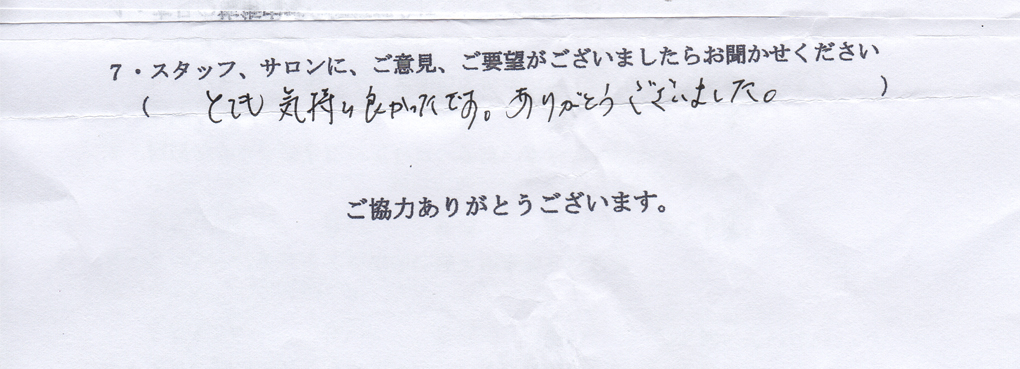 7・スタッフ、サロンに、ご意見、ご要望がございましたらお聞かせください
( とても気持ち良かったです。ありがとうございました。 )
ご協力ありがとうございます。